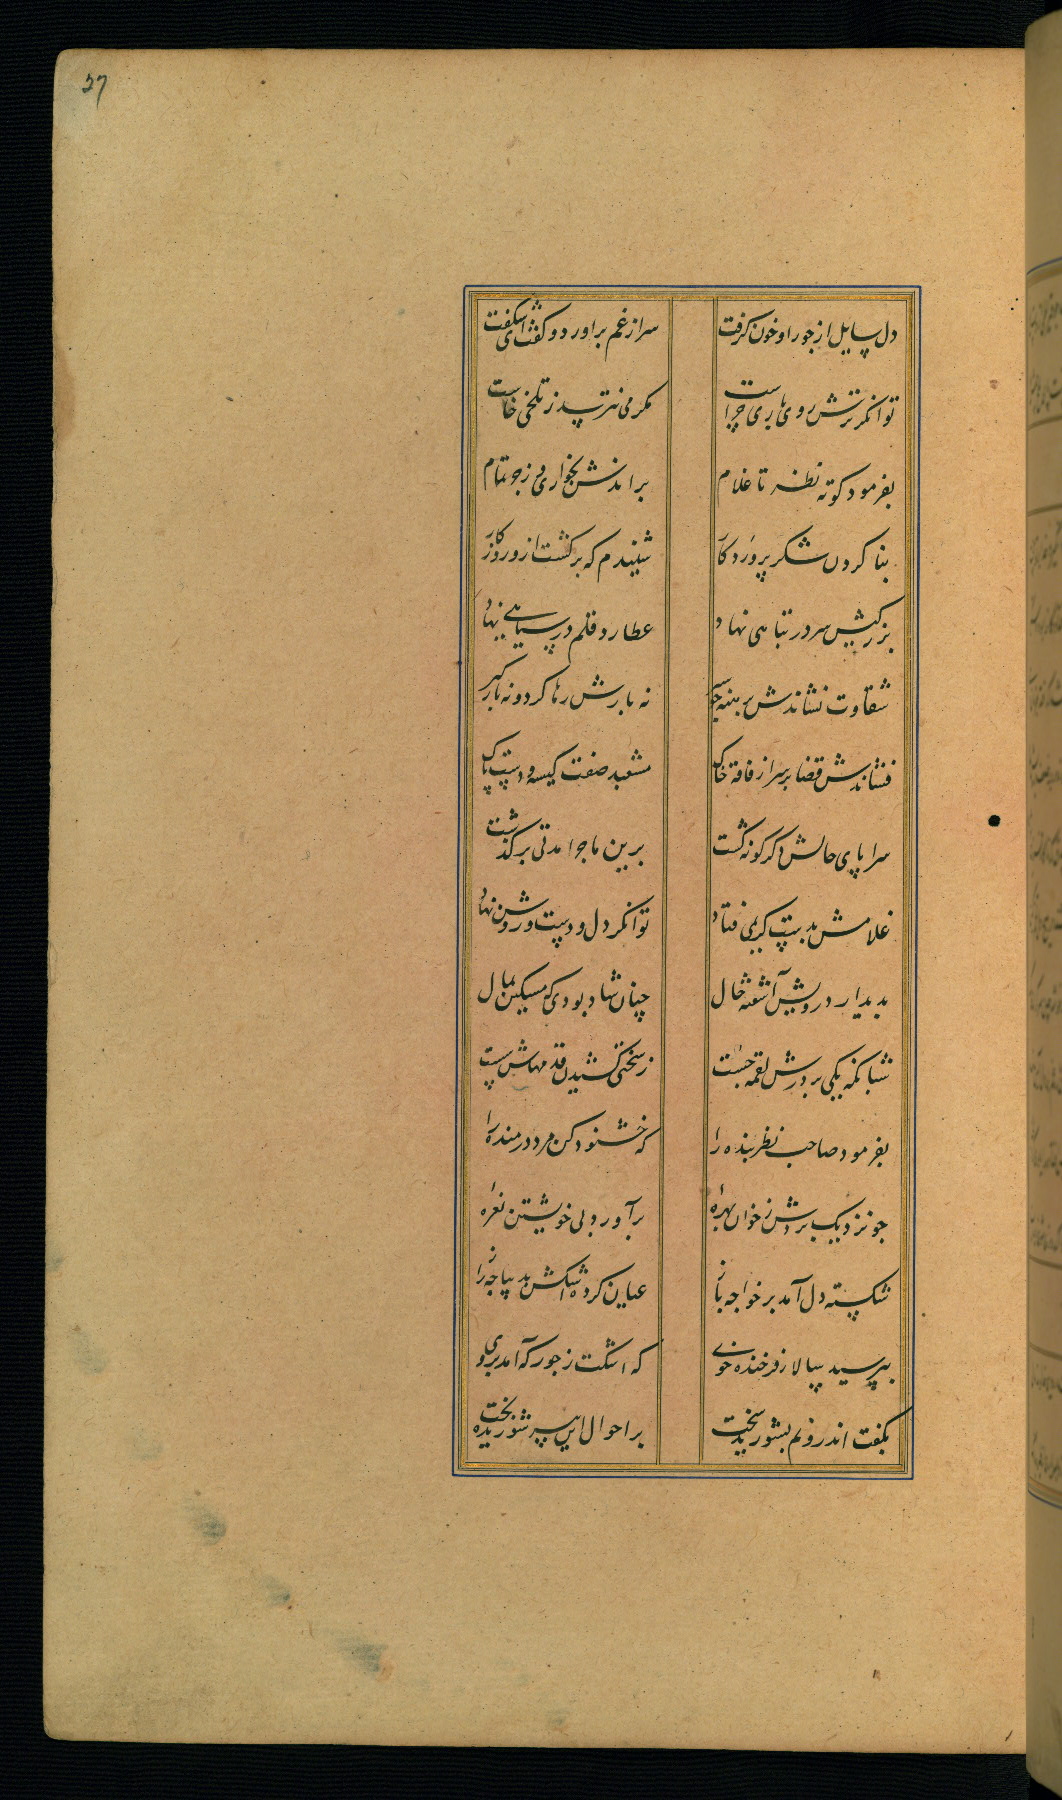 27
دل سایل از جور او خون کرفت سر از غم براورد و کفت ای شکفت
توانکر ترش روی باری چراست مکر می نترسد ز تلخی خاست
بفرمود کوته نظر تا غلام براندش بخواری و زجر تمام
بنا کردن شکر پروردکار شنیدم که برکشت ازو روزکار
بزرکیش سر در تباهی نهاد عطارد قلم در سیاهی نهاد
شقاوت برهنه نشاندش چو سیر نه بارش رها کرد و نه بارکیر
فشاندش قضا بر سر از فاقه خاک مشعبد صفت کیسه و دست پاک
سراپای حالش دکرکونه کشت برین ماجرا مدتی برکذشت
غلامش بدست کریمی فتاد توانکر دل و دست و روشن نهاد
بدیدار درویش آشفته حال چنان شاد بودی که مسکین بمال
شبانکه یکی بر درش لقمه جست ز سختی کشیدن قدمهاش سست
بفرمود صاحب نظر بنده را که خشنود کن مرد درمنده را
چو نزدیک بردش ز خوان بهره‌ا برآورد بی خویشتن نعره‌ا
شکسته دل آمد بر خواجه باز عیان کرده اشکش بدیباجه راز
بپرسید سالار فرخنده خوی که اشکت ز جور که آمد بروی
بکفت اندرونم بشورید سخت بر احوال این پیر شوریده بخت